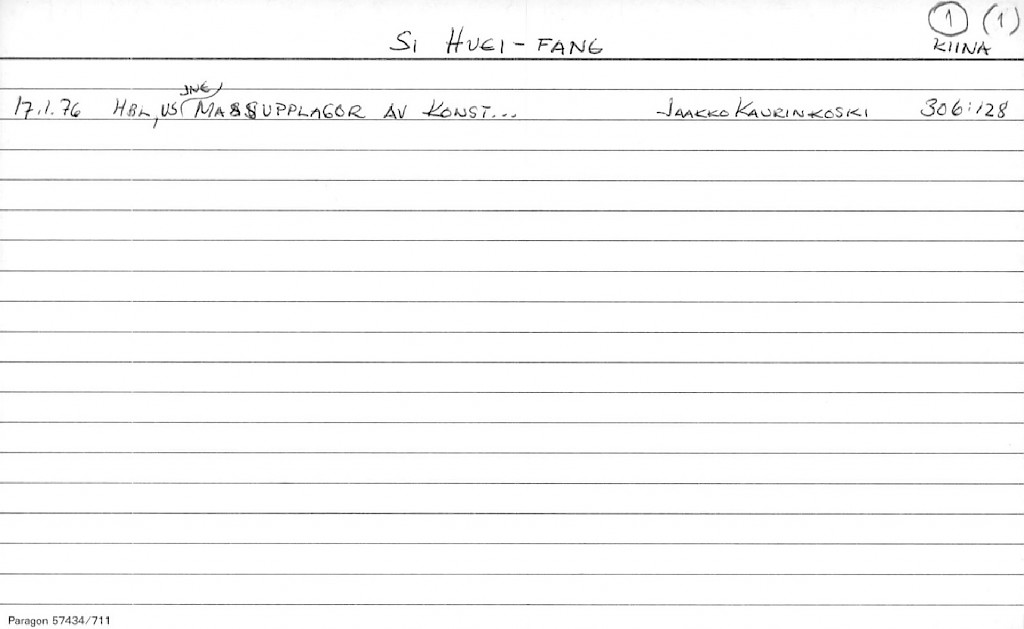 1 (1)
SI HUEI-FANG KIINA
JNE
17.1.76 HBL, US MASSUPPLAGOR AV KONST... JAAKKO KAURINKOSKI 306:128
Paragon 57434/711